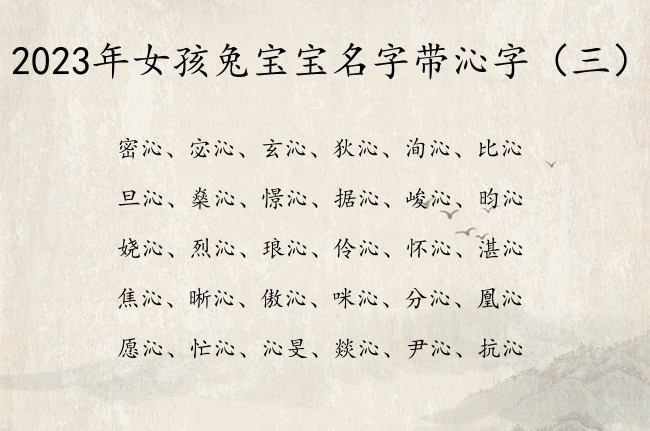 2023年女孩兔宝宝名字带沁字（三）
密沁、宓沁、玄沁、狄沁、洵沁、比沁
旦沁、燊沁、憬沁、据沁、峻沁、昀沁
娆沁、烈沁、琅沁、伶沁、怀沁、湛沁
焦沁、晰沁、傲沁、咪沁、分沁、凰沁
愿沁、忙沁、沁旻、燚沁、尹沁、抗沁